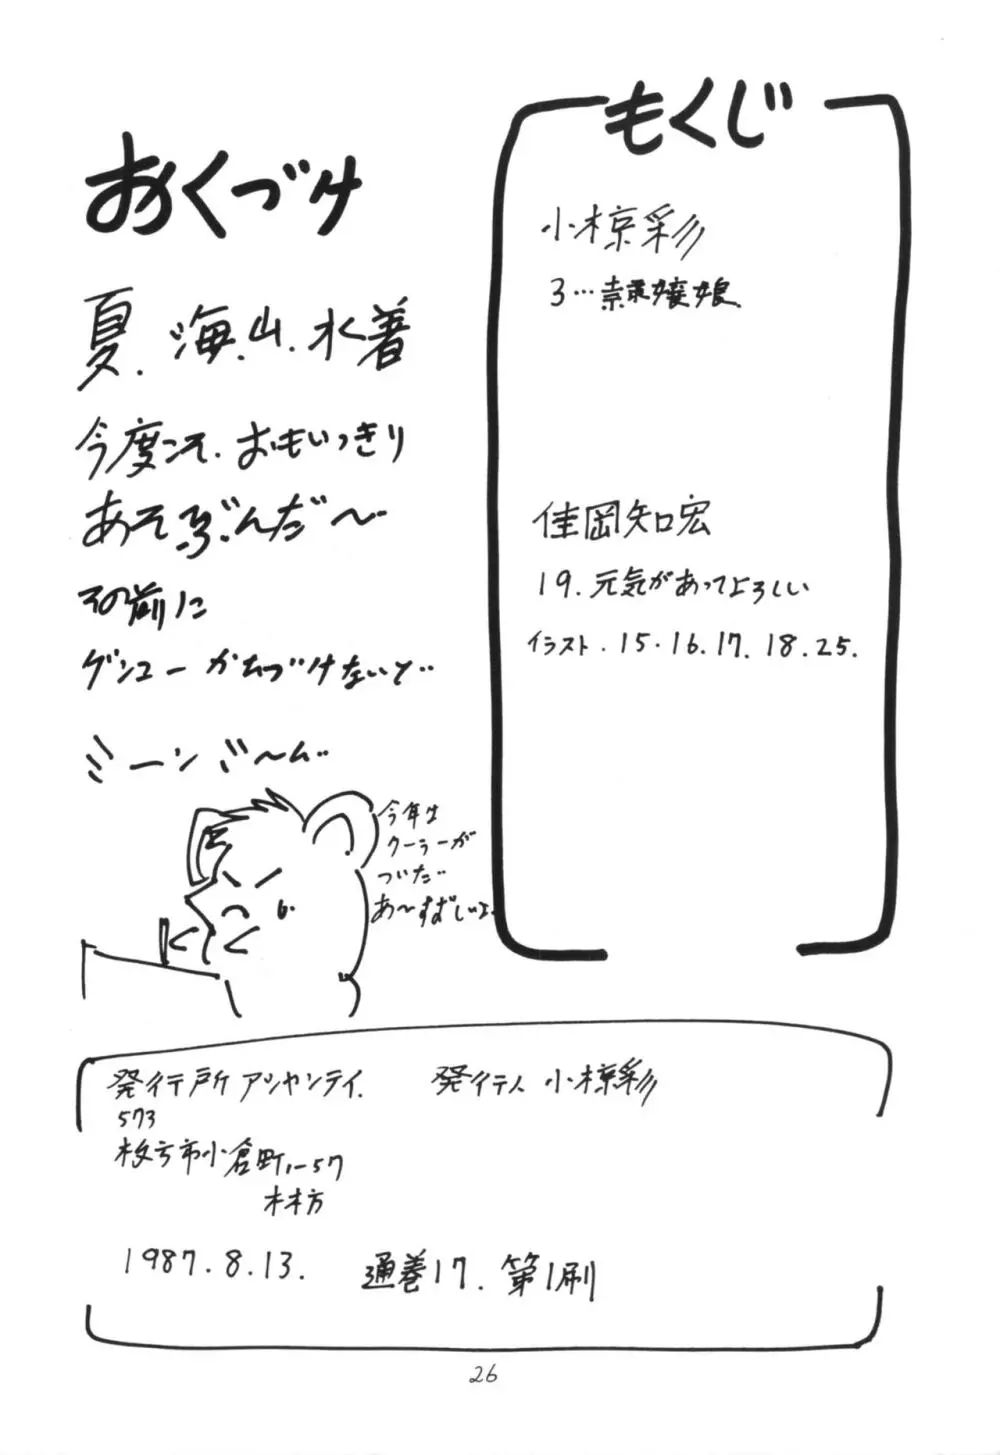 おくづけ
夏.海.山.水着
今度こそ.おもいっきり
あそぶんだ〜
その前に
ゲンコーかたづけないと‥
ミーンミ〜ん‥
今年は
クーラーが
ついた‥
あ〜すずしいよ.
もくじ
小椋彩
3…嬢娘
佳岡知宏
19.元気があってよろしい
イラスト.15.16.17.18.25.
発行所 アシャンティ. 発行人 小椋彩
573
枚方市小倉町1-57
林方
1987.8.13. 通巻17.第1刷
26